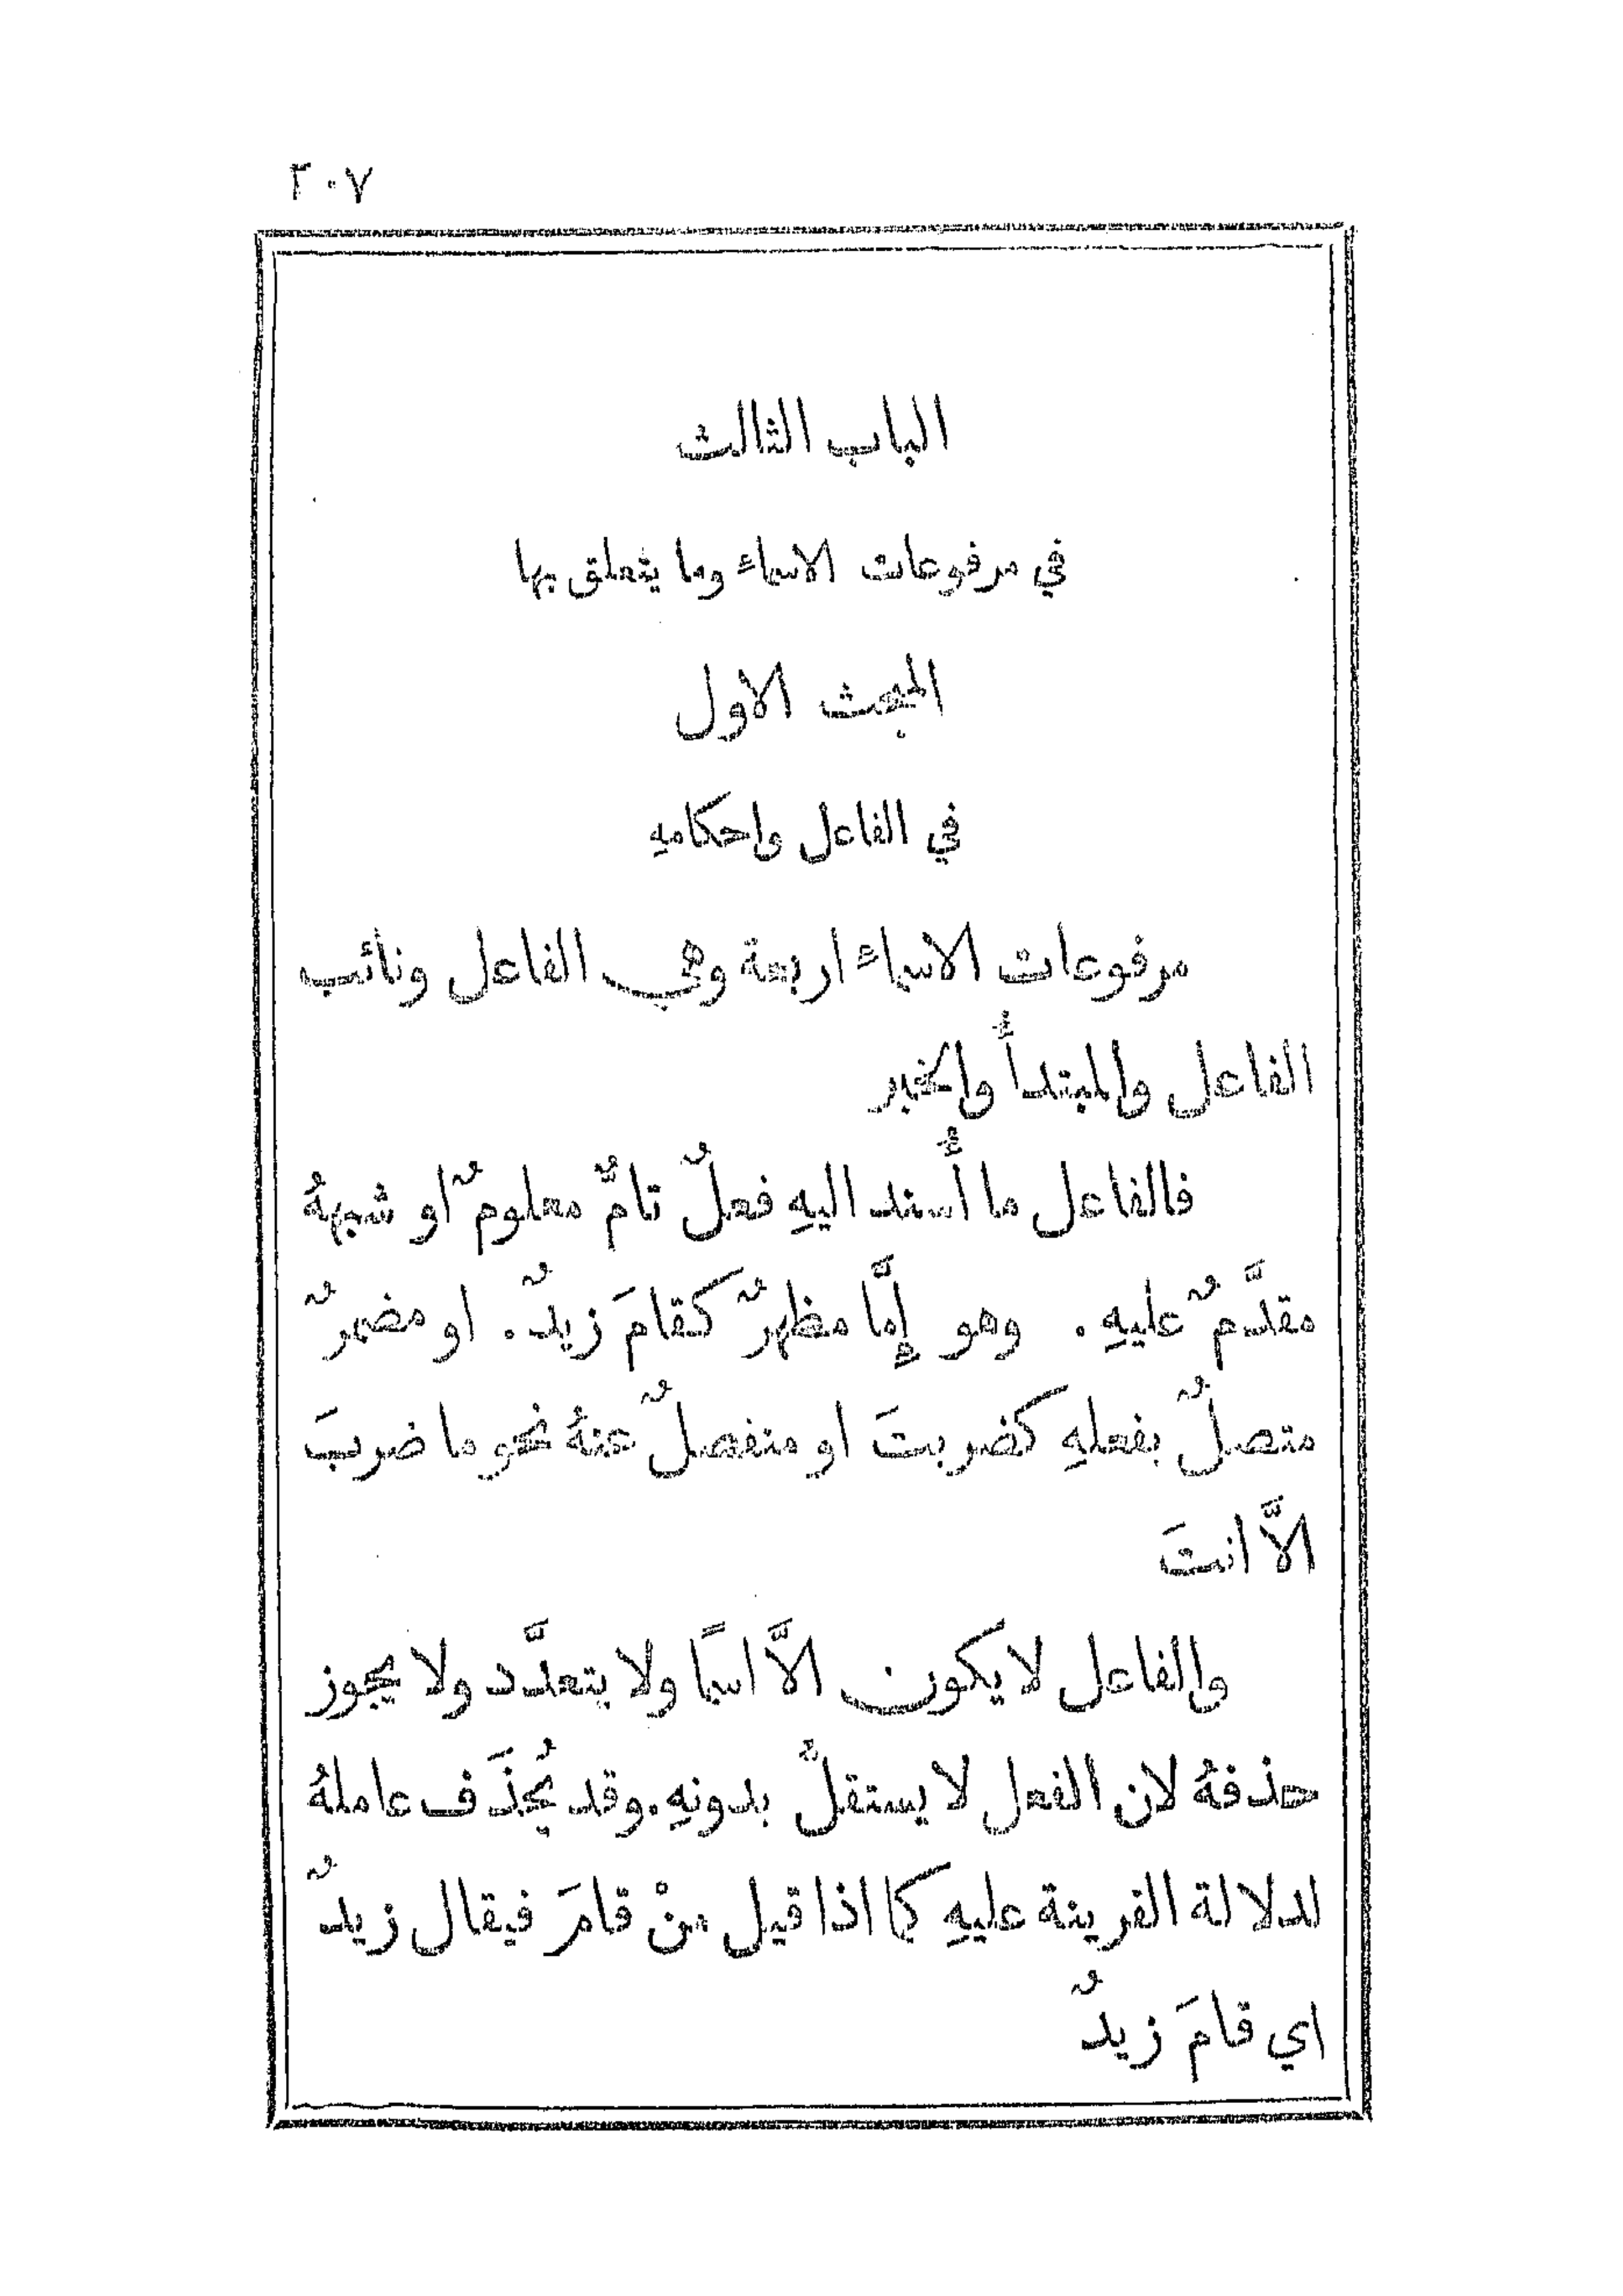 ٢٠٧
الباب الثالث
في مرفوعات الاسماء وما يتعلق بها
المبحث الاول
في الفاعل واحكامهِ
مرفوعات الاسماء اربعة وهي الفاعل ونائب
الفاعل والمبتدأُ والخبر
فالفاعل ما أُسند اليهِ فعلٌ تامٌّ معلومٌ او شبههُ
مقدَّمٌ عليهِ. وهو إِمَّا مظهرٌ كقامَ زيدٌ. او مضمرٌ
متصلٌ بفعلهِ كضربتَ او منفصلٌ عنهُ نحو ما ضربَ
الاَّ انتَ
والفاعل لا يكون الاَّ اسمًا ولا يتعدَّد ولا يجوز
حذفهُ لان الفعل لا يستقلُّ بدونهِ. وقد يُحذَف عاملهُ
لدلالة القرينة عليهِ كما اذا قيل منْ قامَ فيقال زيدٌ
اي قامَ زيدٌ